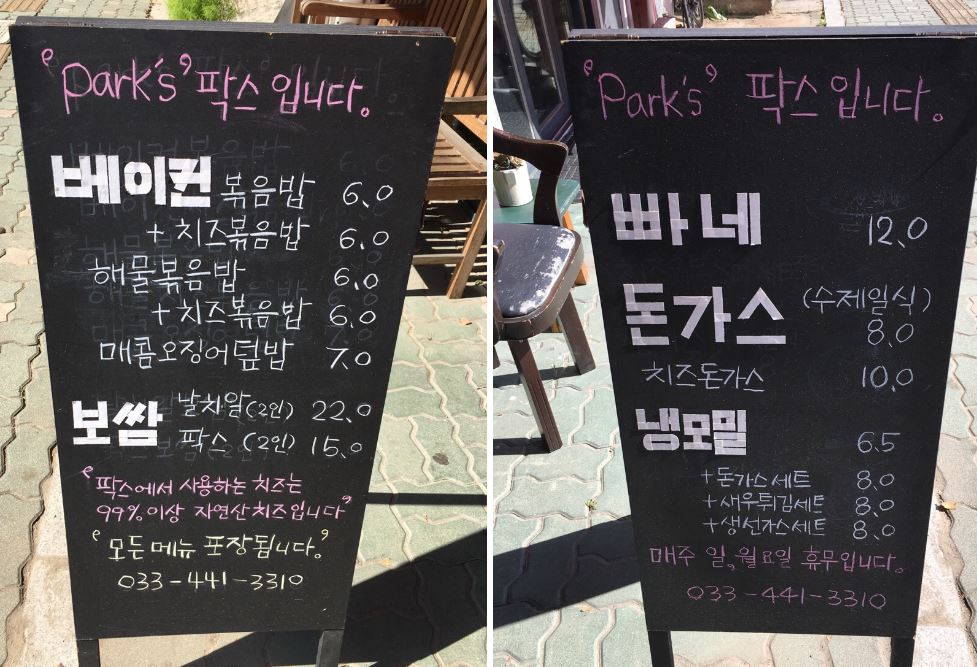 "Park's" 팍스입니다.
베이컨 볶음밥 6.0
+치즈볶음밥 6.0
해물볶음밥 6.0
+치즈볶음밥 6.0
매콤오징어덮밥 7.0
보쌈 날치알(2인) 22.0
팍스 (2인) 15.0
"팍스에서 사용하는 치즈는
99%이상 자연산치즈입니다"
"모든메뉴 포장됩니다."
033-441-3310
"Park's" 팍스입니다.
빠네 12.0
돈가스 (수제일식) 8.0
치즈돈가스 10.0
냉모밀 6.5
+돈가스세트 8.0
+새우튀김세트 8.0
+생선가스세트 8.0
매주 일,월요일 휴무입니다.
033-441-3310